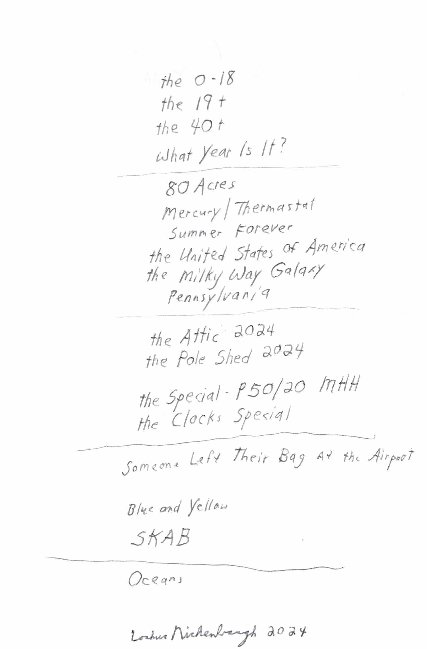 the 0-18
the 19+
the 40+
What Year Is It?
80 Acres
Mercury/Thermastat
Summer Forever
the United States of America
the Milky Way Galaxy
Pennsylvania
the Attic 2024
the Pole Shed 2024
the Special - P50/20 MHH
the Clocks Special
Someone Left Their Bag At the Airport
Blue and Yellow
SKAB
Oceans
2024